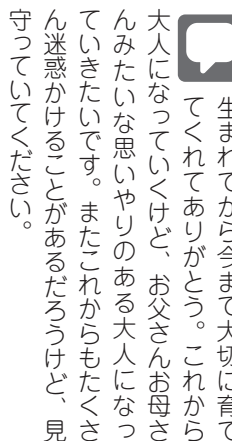 生まれてから今まで大切に育て
てくれてありがとう。これから
大人になっていくけど、お父さんお母さ
んみたいな思いやりのある大人になっ
ていきたいです。またこれからもたくさ
ん迷惑かけることがあるだろうけど、見
守っていてください。